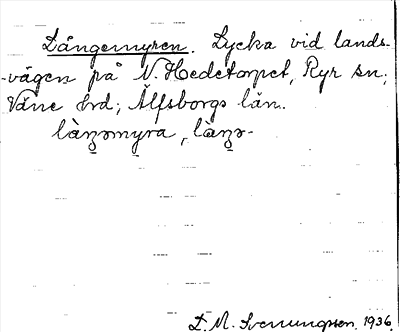 Långemyren. Lycka vid lands-
-vägen på N. Hedetorpet, Ryr sn;
Väne hrd; Älfsborgs län.
làn̠z̠əmyra, làn̠z̠ə-
D. M. Svenungsson. 1936.